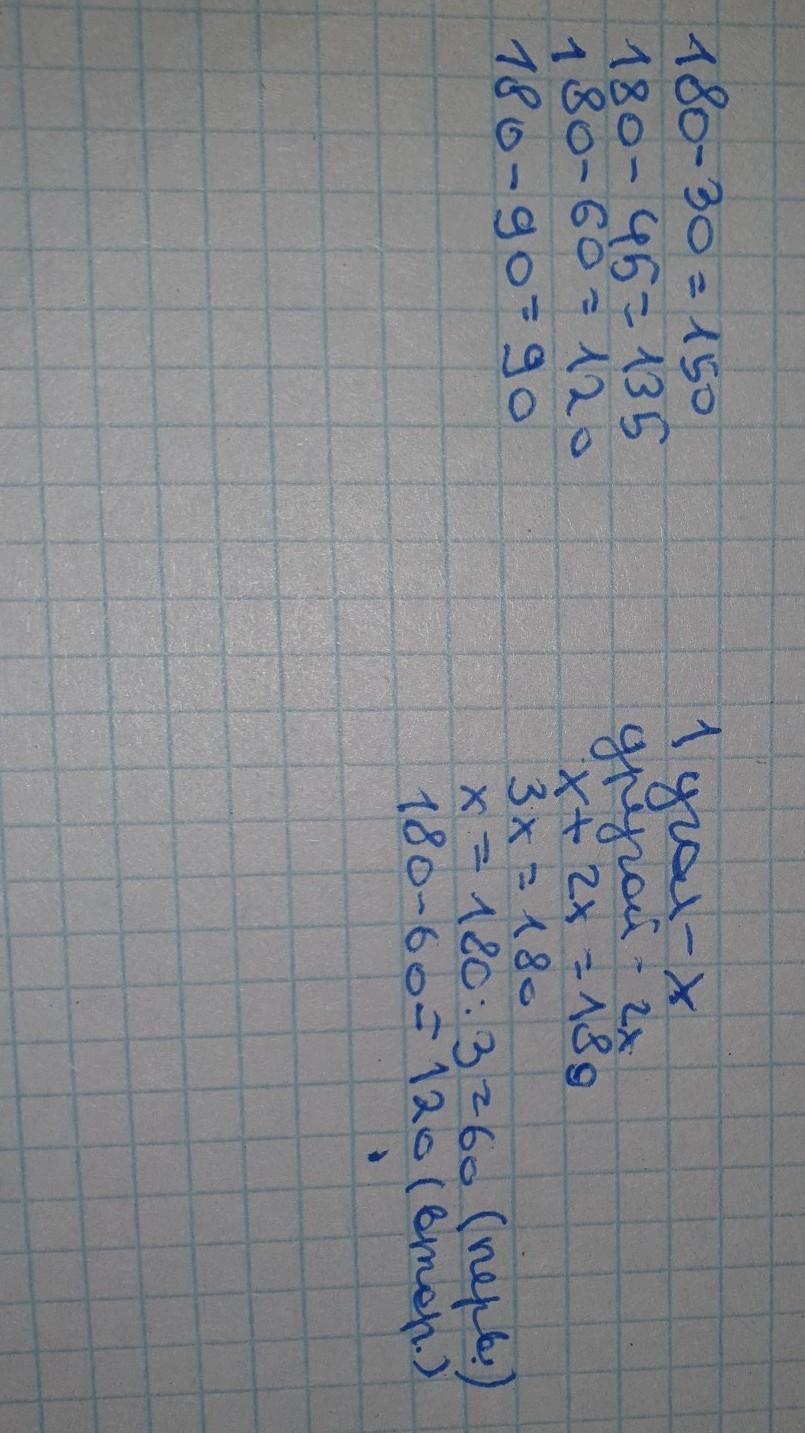 180-30=150
180-45=135
180-60=120
180-90=90
1 угол-х
другой-2х
х+2х=180
3х=180
х=180:3=60 (перв.)
180-60=120 (втор.)